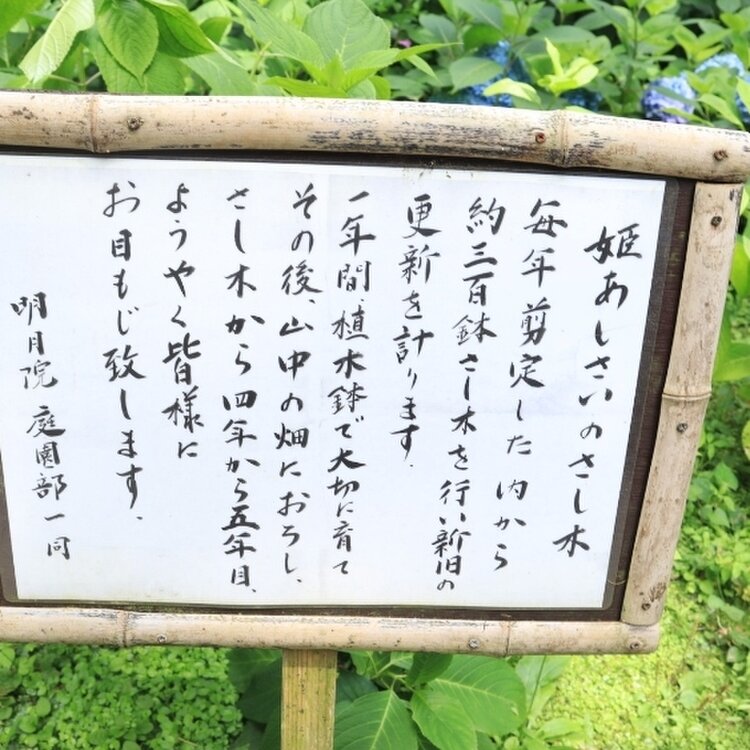 姫あじさいのさし木
毎年剪定した内から
約三百鉢さし木を行い新旧の
更新を計ります。
一年間、植木鉢で大切に育て
その後、山中の畑におろし、
さし木から四年から五年目、
ようやく皆様に
お目もじ致します。
明月院 庭園部一同